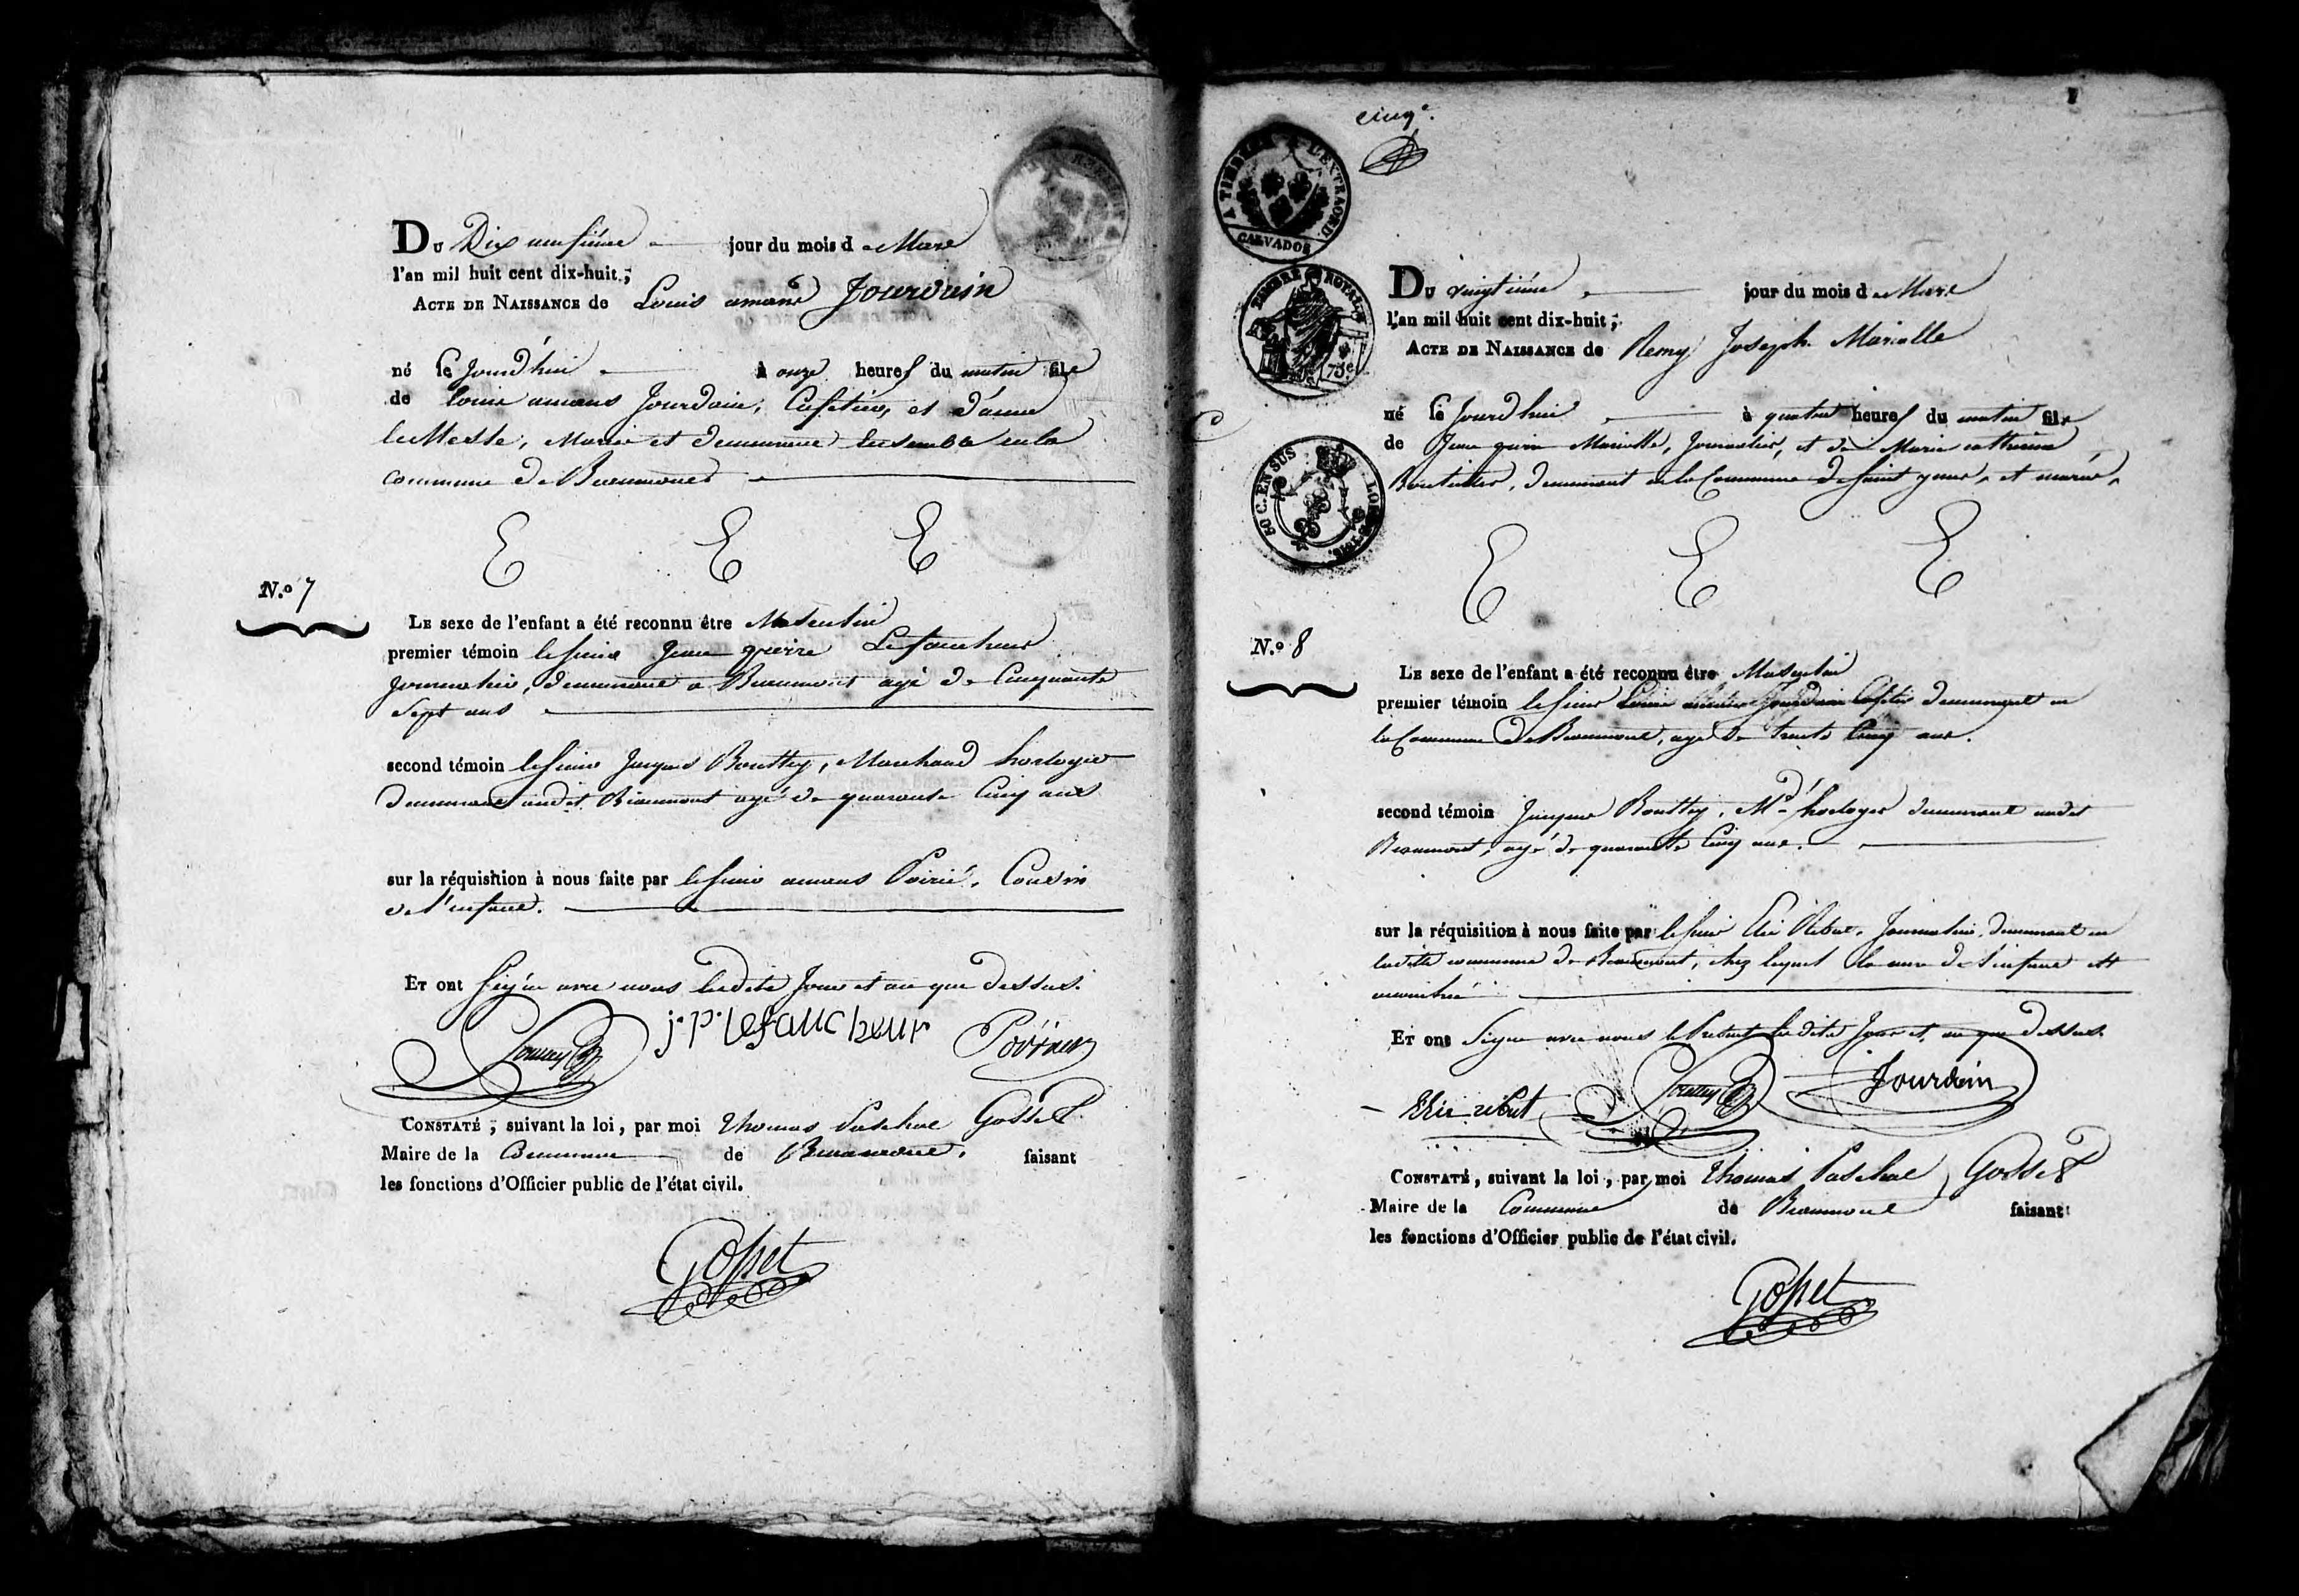 Du Dix neufième jour du mois de Mars
l'an mil huit cent dix-huit;
Acte de Naissance de Louis amand Jourdain
né ce Jourd'hui à onze heures du matin fils
de Louis amand Jourdain, Cafetier, et d'anne
le Mesle, Mariés et demeurant Ensemble en la
commune de Beaumont
N.o 7
Le sexe de l'enfant a été reconnu être Masculin
premier témoin le sieur Jean pierre Lefaucheur
Journalier, demeurant a Beaumont agé de Cinquante
Sept ans
second témoin le sieur Jacques Bouttey, Marchand horloger
demeurant audit Beaumont agé de quarante Cinq ans
sur la réquisition à nous faite par le sieur amand Poirié, Cousin
de l'enfant.
Et ont signé avec nous lesdits Jour et an que dessus.
j.p. lefaucheur
Constaté, suivant la loi, par moi Thomas Paschal Gosset
Maire de la Commune de Beaumont, faisant
les fonctions d'Officier public de l'état civil.
Gosset
cinq.e
A TIMBRER A L'EXTRAORD.
CALVADOS
TIMBRE ROYAL
75c
50 C. EN SUS
LOI DE 1816.
Du vingtième jour du mois de Mars
l'an mil huit cent dix-huit;
Acte de Naissance de Remy Joseph Mariolle
né ce Jourd'hui à quatre heures du matin fils
de Jean pierre Mariolle, Journalier, et de Marie catherine
demeurant en la Commune de Saint et mariés,
N.o 8
Le sexe de l'enfant a été reconnu être Masculin
premier témoin le sieur Louis Jourdain Cafetier demeurant en
la Commune de Beaumont, agé de trente Cinq ans.
second témoin Jacques Bouttey, Md horloger demeurant audit
Beaumont, agé de quarante Cinq ans.
sur la réquisition à nous faite par le sieur Elie Ribut, Journalier, demeurant en
ladite commune de Beaumont, chez lequel la mere de l'enfant est
accouchée
Et ont Signé avec nous le Présent lesdits Jour et an que dessus.
Elie ribut
Jourdain
Constaté, suivant la loi, par moi Thomas Paschal Gosset
Maire de la Commune de Beaumont faisant
les fonctions d'Officier public de l'état civil.
Gosset